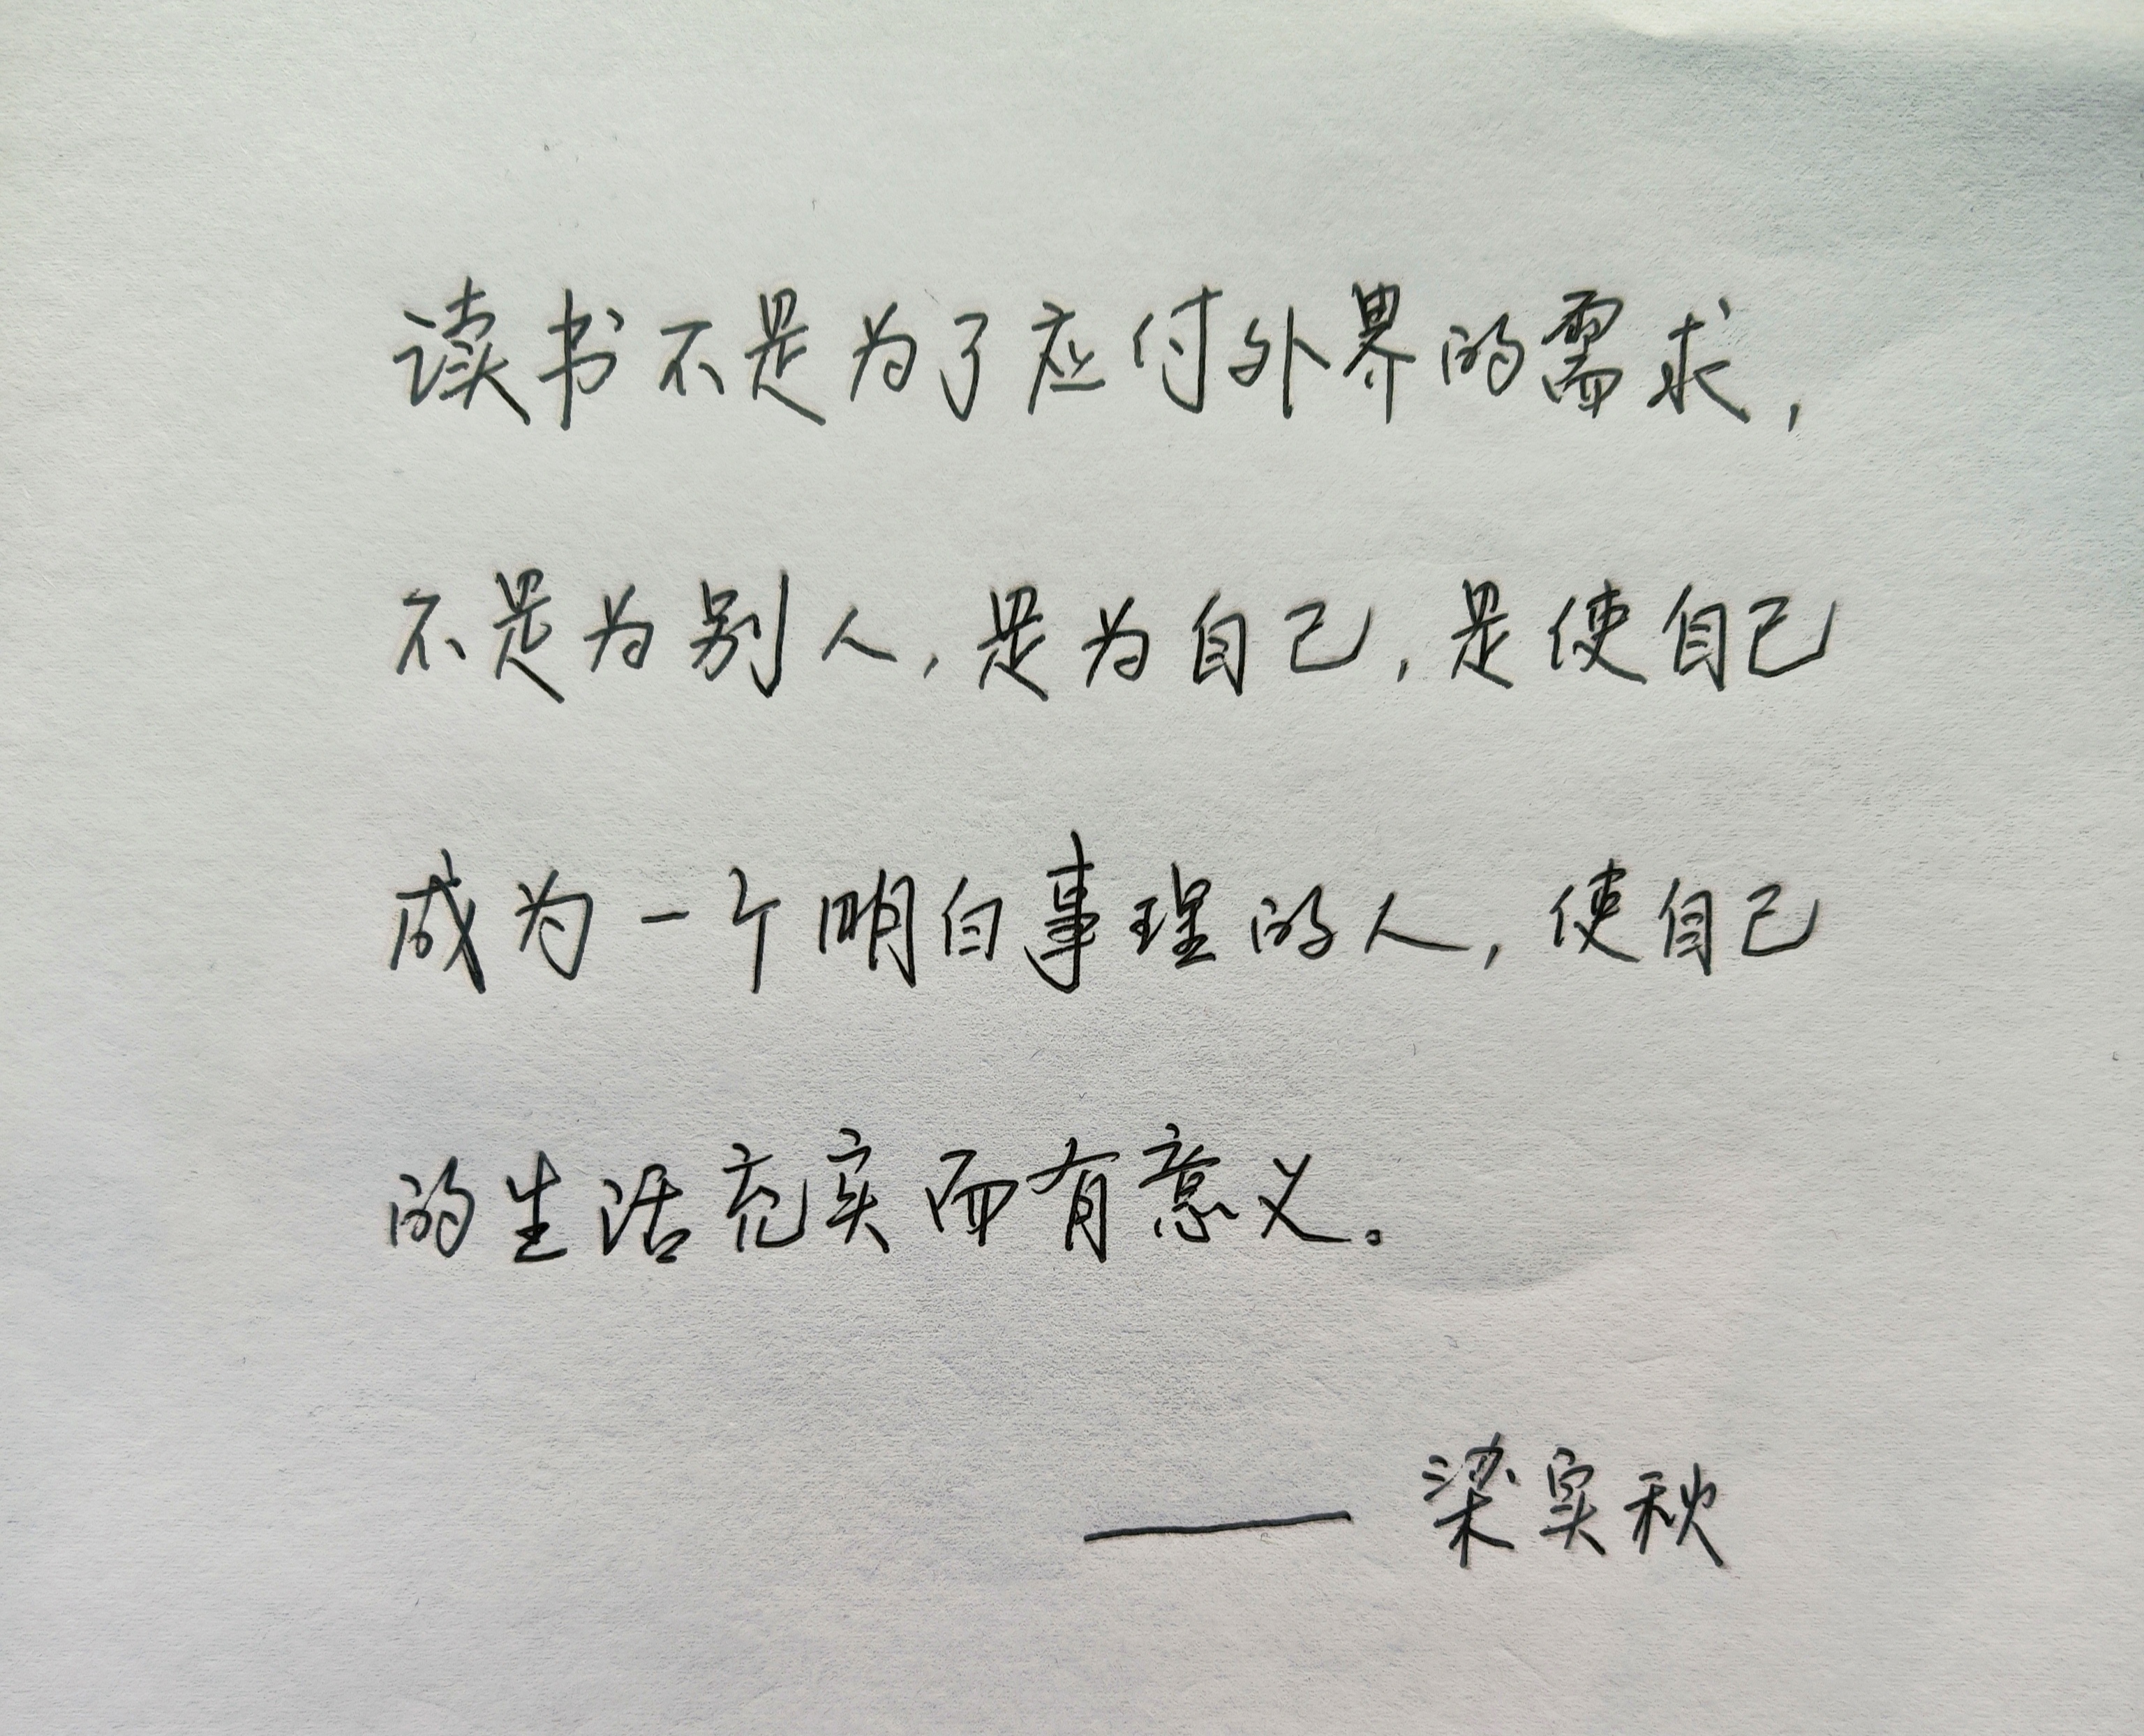 读书不是为了应付外界的需求,
不是为别人,是为自己,是使自己
成为一个明白事理的人,使自己
的生活充实而有意义。
—— 梁实秋